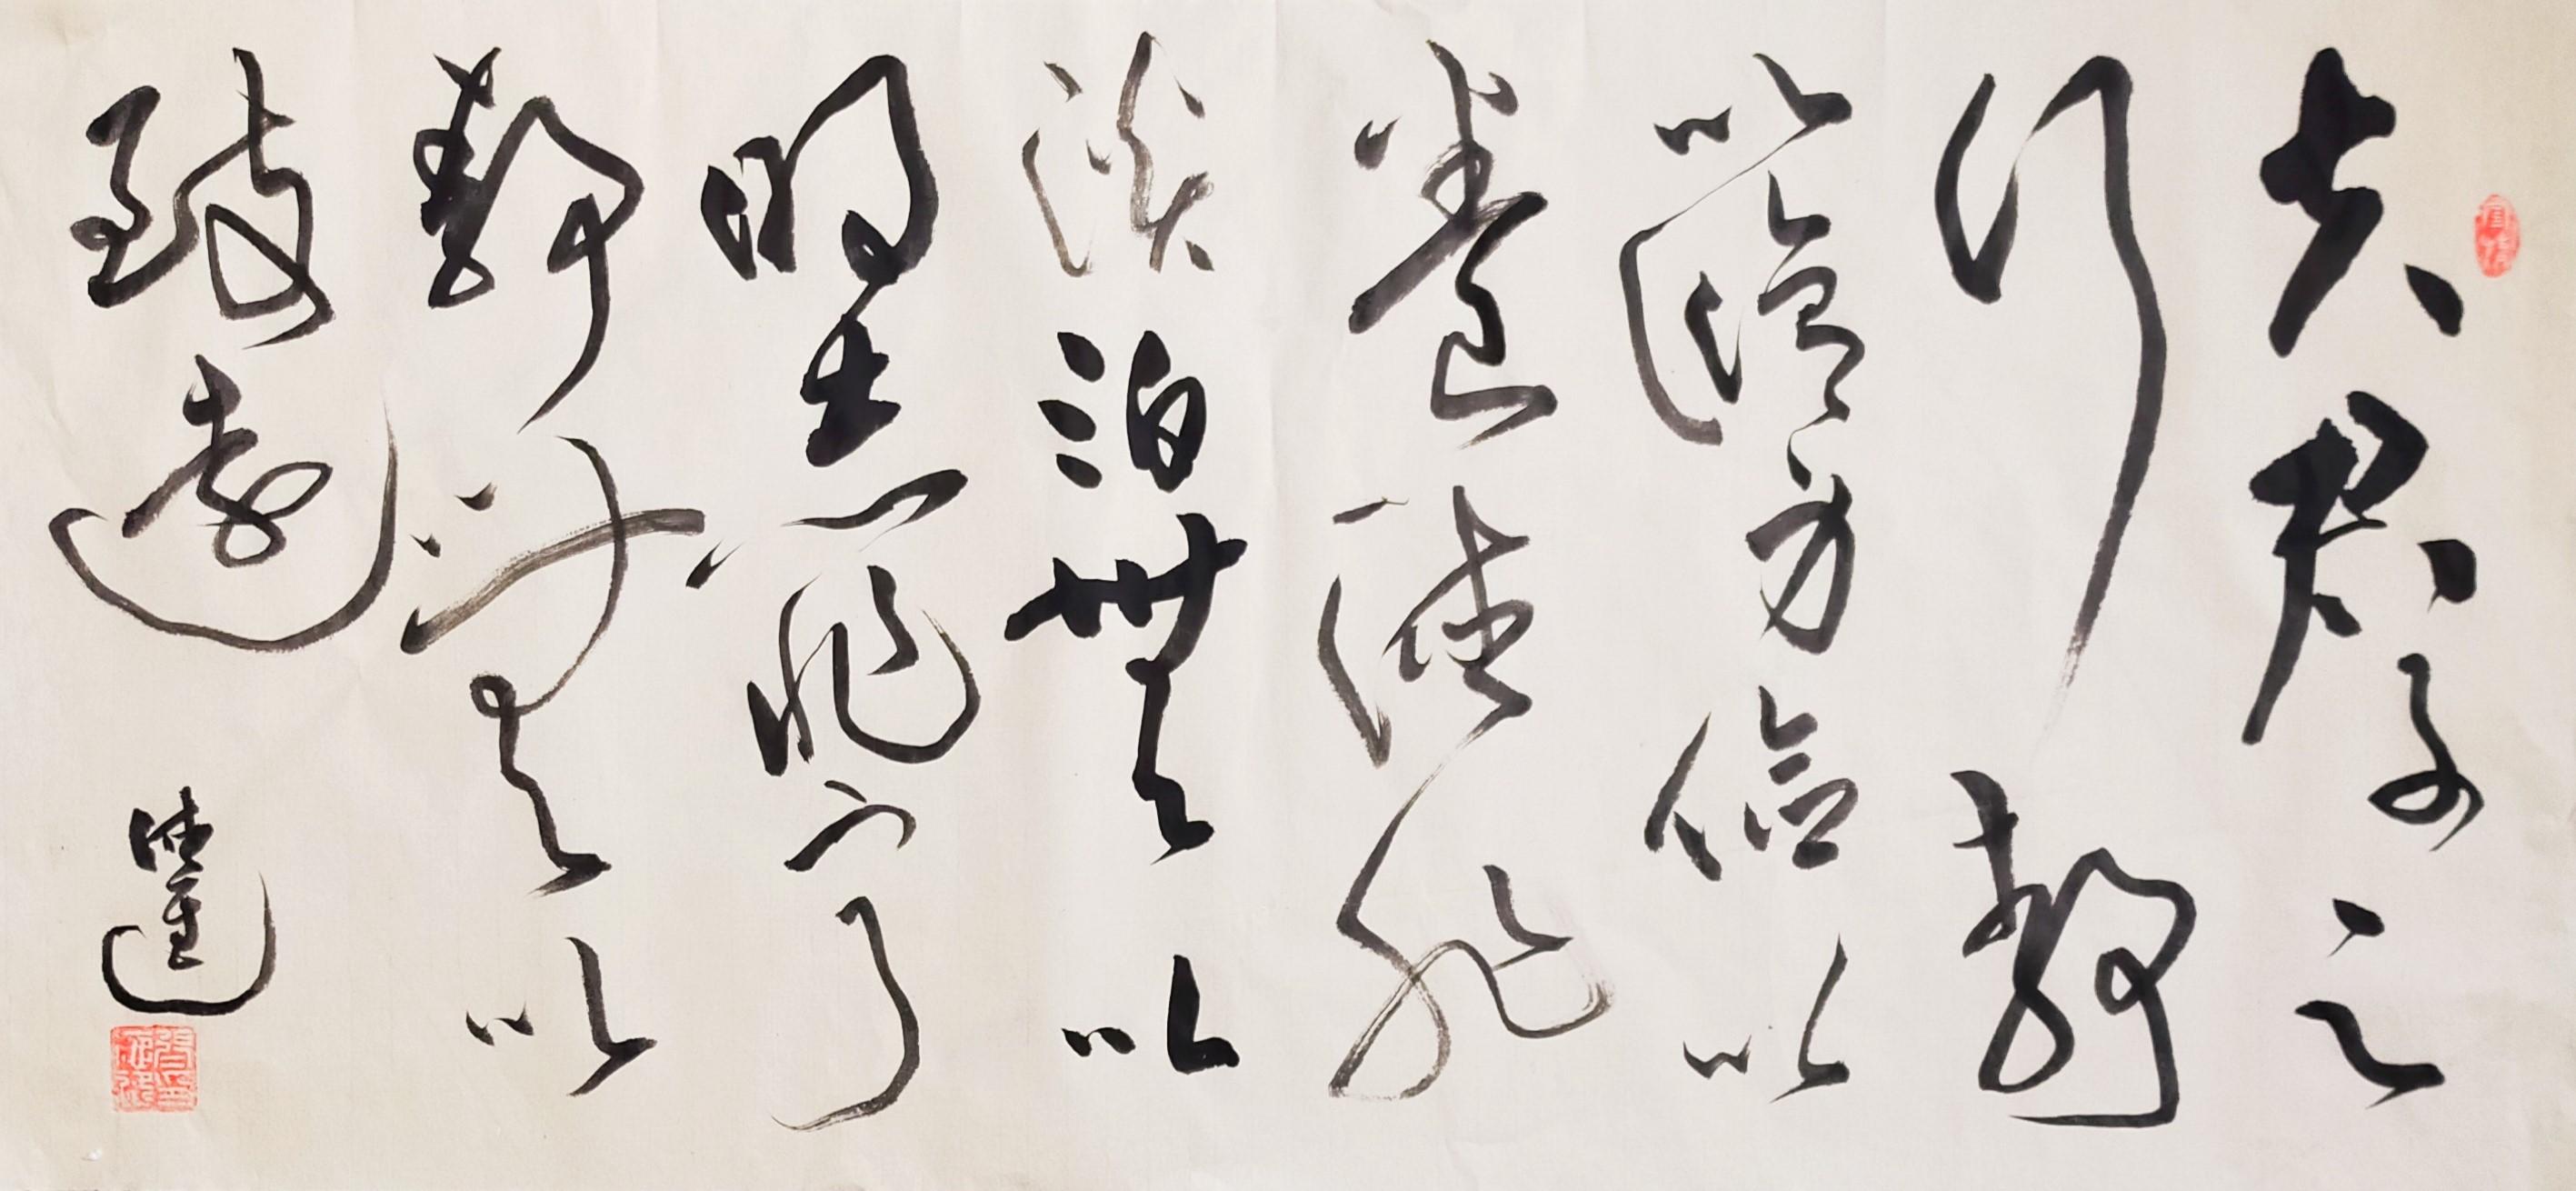 夫君子之
行静
以修身俭以
养德非
淡泊無以
明志非寧
静無以
致遠